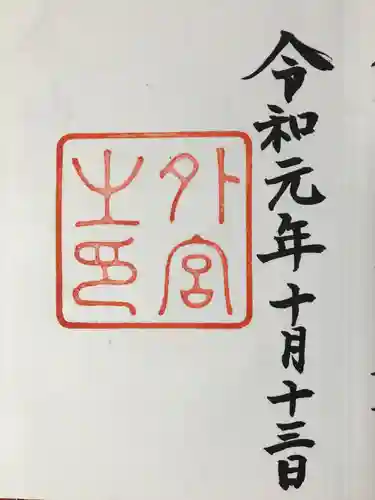 令和元年十月十三日
外宮
之印